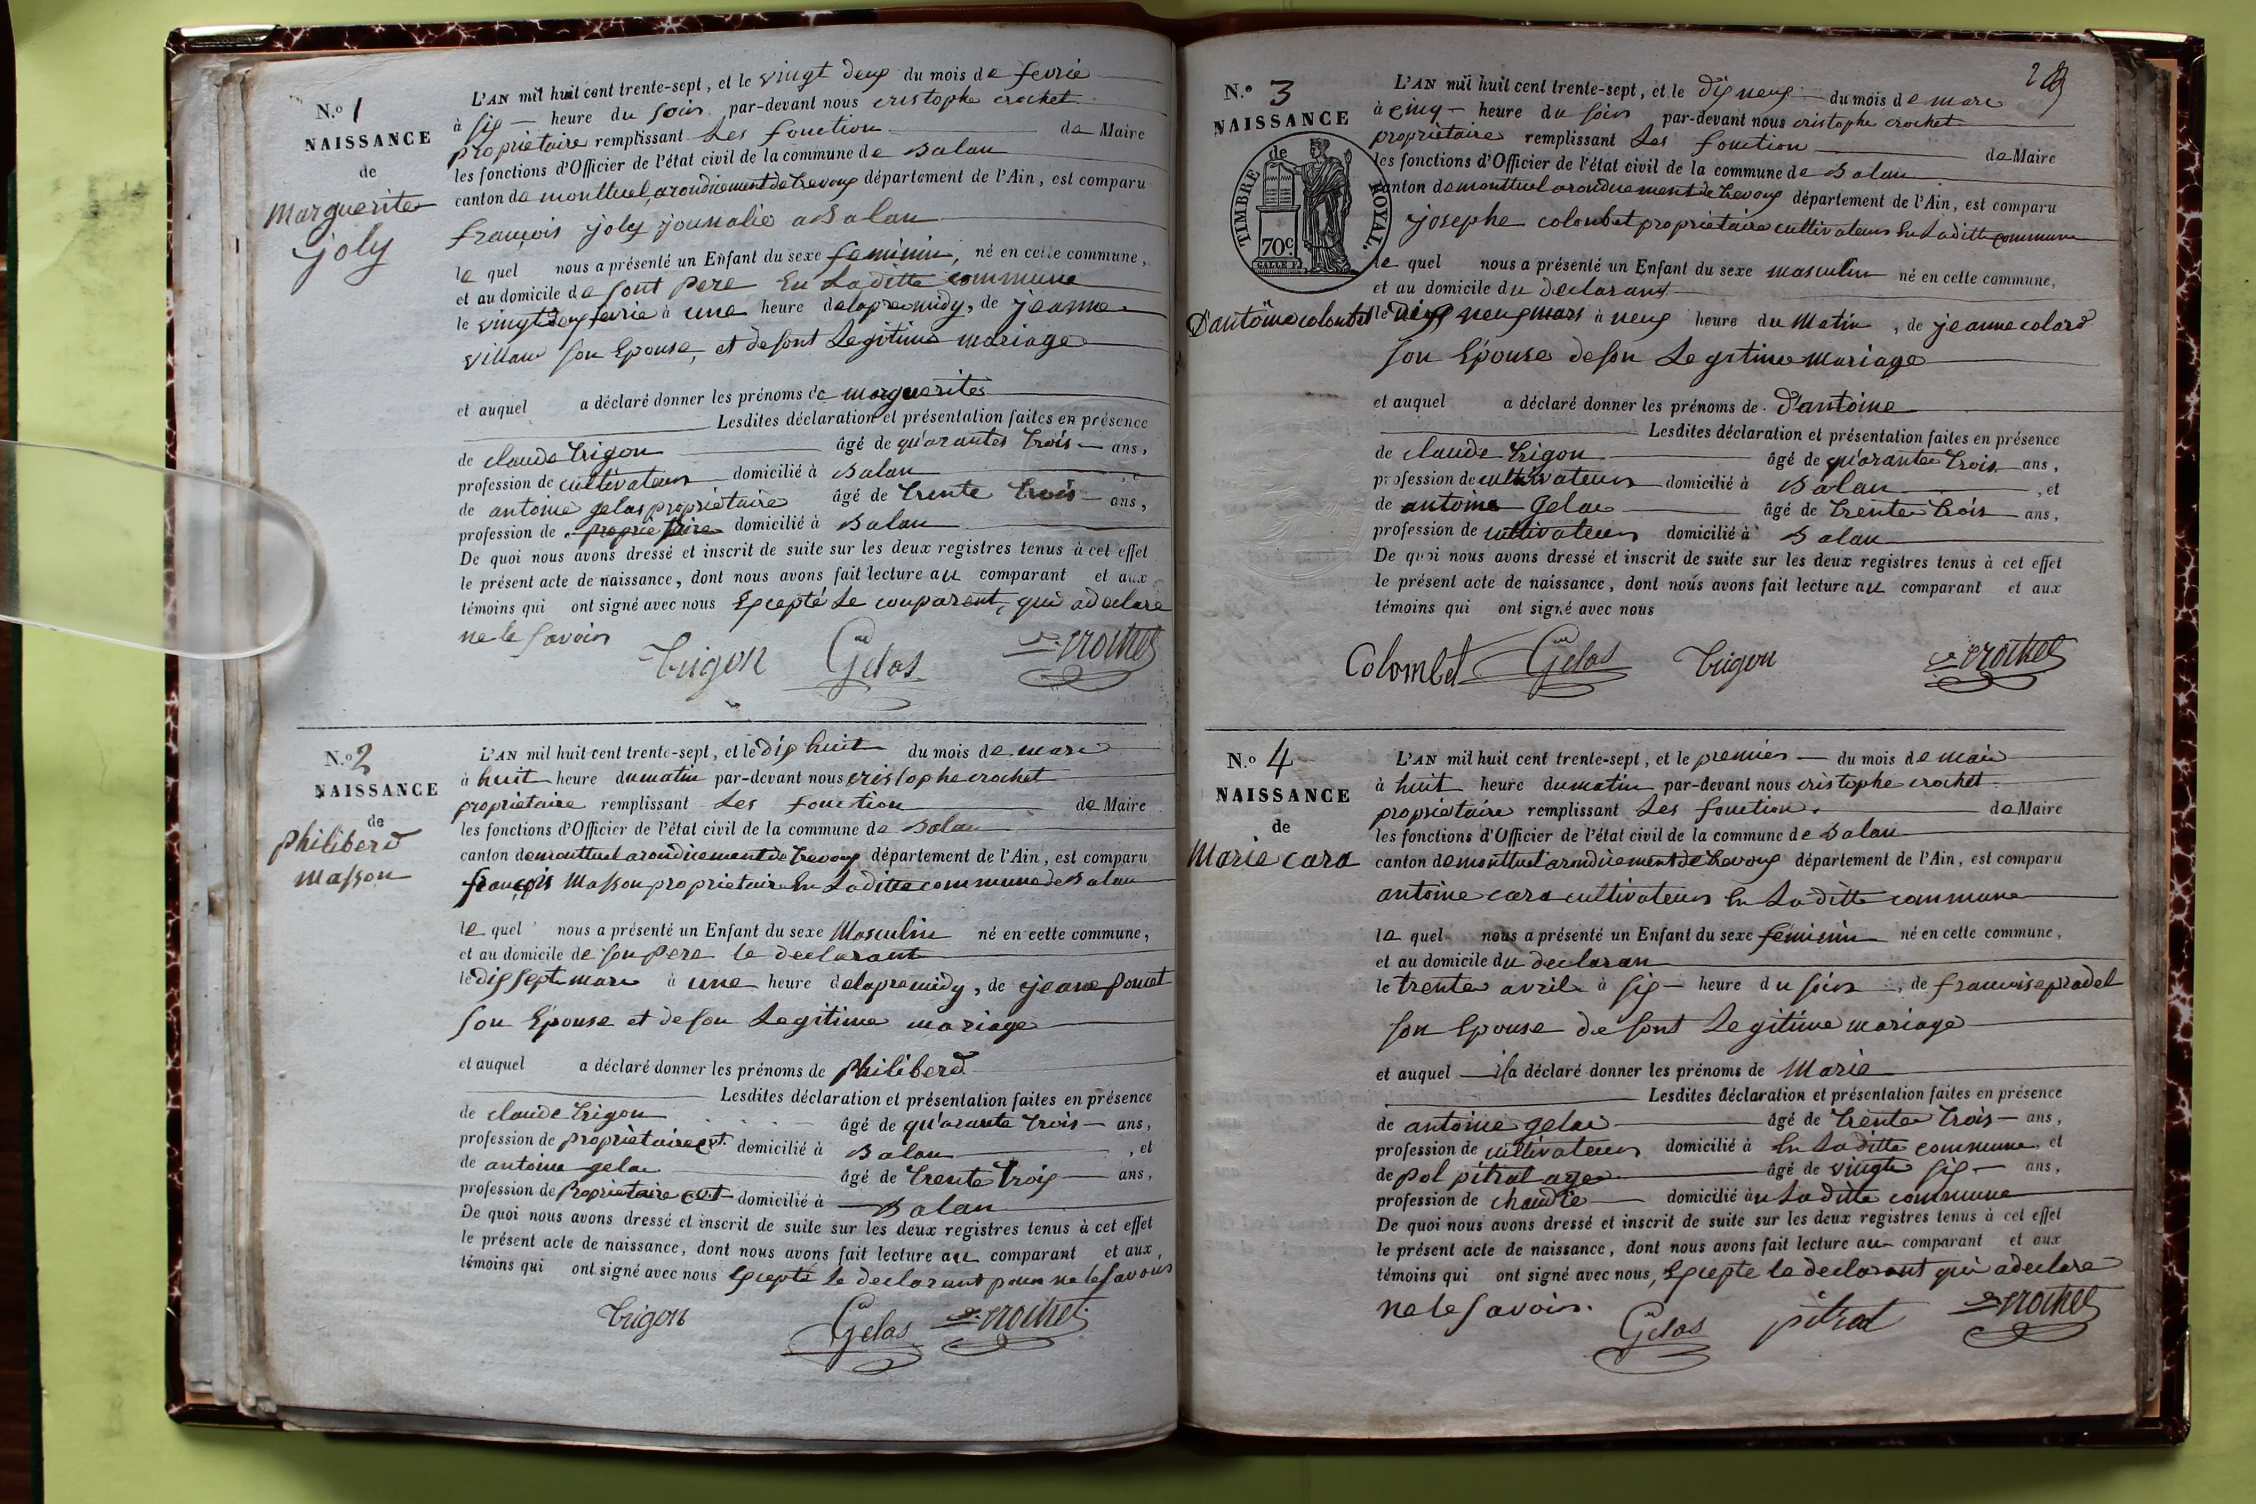 N.o 1
NAISSANCE
de
Marguerite
joly
L'AN mil huit cent trente-sept, et le vingt deux du mois de fevrie
à six heure du soir par-devant nous cristophe crochet
proprietaire remplissant Les fonction de Maire
les fonctions d'Officier de l'état civil de la commune de Balan
canton de montluel, arondicement de trevoux département de l'Ain, est comparu
françois joly journalie a Balan
le quel nous a présenté un Enfant du sexe feminin, né en cette commune,
et au domicile de sont Pere En Laditte commune
le vingt deux fevrie à une heure delapremidy, de jeanne
villan son Epouse, et desont Legitime mariage
et auquel a déclaré donner les prénoms de marguerite
Lesdites déclaration et présentation faites en présence
de claude trigon âgé de quarante trois ans,
profession de cultivateur domicilié à Balan, et
de antoine gelas proprietaire âgé de trente trois ans,
profession de proprietaire domicilié à Balan
De quoi nous avons dressé et inscrit de suite sur les deux registres tenus à cet effet
le présent acte de naissance, dont nous avons fait lecture au comparant et aux
témoins qui ont signé avec nous Excepté Le conparent, qui a declare
ne le savoir
trigon Gelas crochet
N.o 2
NAISSANCE
de
Philiberd
Masson
L'AN mil huit cent trente-sept, et le dix huit du mois de mars
à huit heure du matin par-devant nous cristophe crochet
proprietaire remplissant Les fonction de Maire
les fonctions d'Officier de l'état civil de la commune de Balan
canton de montluel arondicement de trevoux département de l'Ain, est comparu
françois Masson proprietaire En Laditte commune de Balan
le quel nous a présenté un Enfant du sexe Masculin né en cette commune,
et au domicile de son pere le declarant
le dix sept mars à une heure delapremidy, de jeane poncet
son Epouse et de son Legitime mariage
et auquel a déclaré donner les prénoms de Philiberd
Lesdites déclaration et présentation faites en présence
de claude trigon âgé de quarante trois ans,
profession de proprietaire domicilié à Balan, et
de antoine gelas âgé de trente trois ans,
profession de Proprietaire domicilié à Balan
De quoi nous avons dressé et inscrit de suite sur les deux registres tenus à cet effet
le présent acte de naissance, dont nous avons fait lecture au comparant et aux
témoins qui ont signé avec nous Excepte le declarant pour ne le savoir
trigon Gelas crochet
N.o 3
NAISSANCE
de
TIMBRE ROYAL.
70c
D'antoine colonbet
L'AN mil huit cent trente-sept, et le dix neuf du mois de mars
à cinq heure du soir par-devant nous cristophe crochet
proprietaire remplissant Les fonction de Maire
les fonctions d'Officier de l'état civil de la commune de Balan
canton de montluel arondicement de trevoux département de l'Ain, est comparu
josephe colonbet proprietaire cultivateur En Laditte commune
le quel nous a présenté un Enfant du sexe masculin né en cette commune,
et au domicile du declarant
le dix neuf mars à neuf heure du Matin, de jeanne colard
son Epouse de son Legitime mariage
et auquel a déclaré donner les prénoms de d'antoine
Lesdites déclaration et présentation faites en présence
de claude trigon âgé de quarante trois ans,
profession de cultivateur domicilié à Balan, et
de antoine Gelas âgé de trente trois ans,
profession de cultivateur domicilié à Balan
De quoi nous avons dressé et inscrit de suite sur les deux registres tenus à cet effet
le présent acte de naissance, dont nous avons fait lecture au comparant et aux
témoins qui ont signé avec nous
Colombet Gelas trigon crochet
N.o 4
NAISSANCE
de
Marie cara
L'AN mil huit cent trente-sept, et le premier du mois de mai
à huit heure du matin par-devant nous cristophe crochet
proprietaire remplissant Les fonction de Maire
les fonctions d'Officier de l'état civil de la commune de Balan
canton de montluel arondicement de trevoux département de l'Ain, est comparu
antoine cara cultivateur En Laditte commune
le quel nous a présenté un Enfant du sexe feminin né en cette commune,
et au domicile du declaran
le trente avril à six heure du soir, de francoise pradel
son Epouse de sont Legitime mariage
et auquel il a déclaré donner les prénoms de Marie
Lesdites déclaration et présentation faites en présence
de antoine gelas âgé de trente trois ans,
profession de cultivateur domicilié à En Laditte commune, et
de pol pitrat age âgé de vingt six ans,
profession de domicilié à Laditte commune
De quoi nous avons dressé et inscrit de suite sur les deux registres tenus à cet effet
le présent acte de naissance, dont nous avons fait lecture au comparant et aux
témoins qui ont signé avec nous, Excepte le declarant qui a declare
ne le savoir.
Gelas pitrat crochet